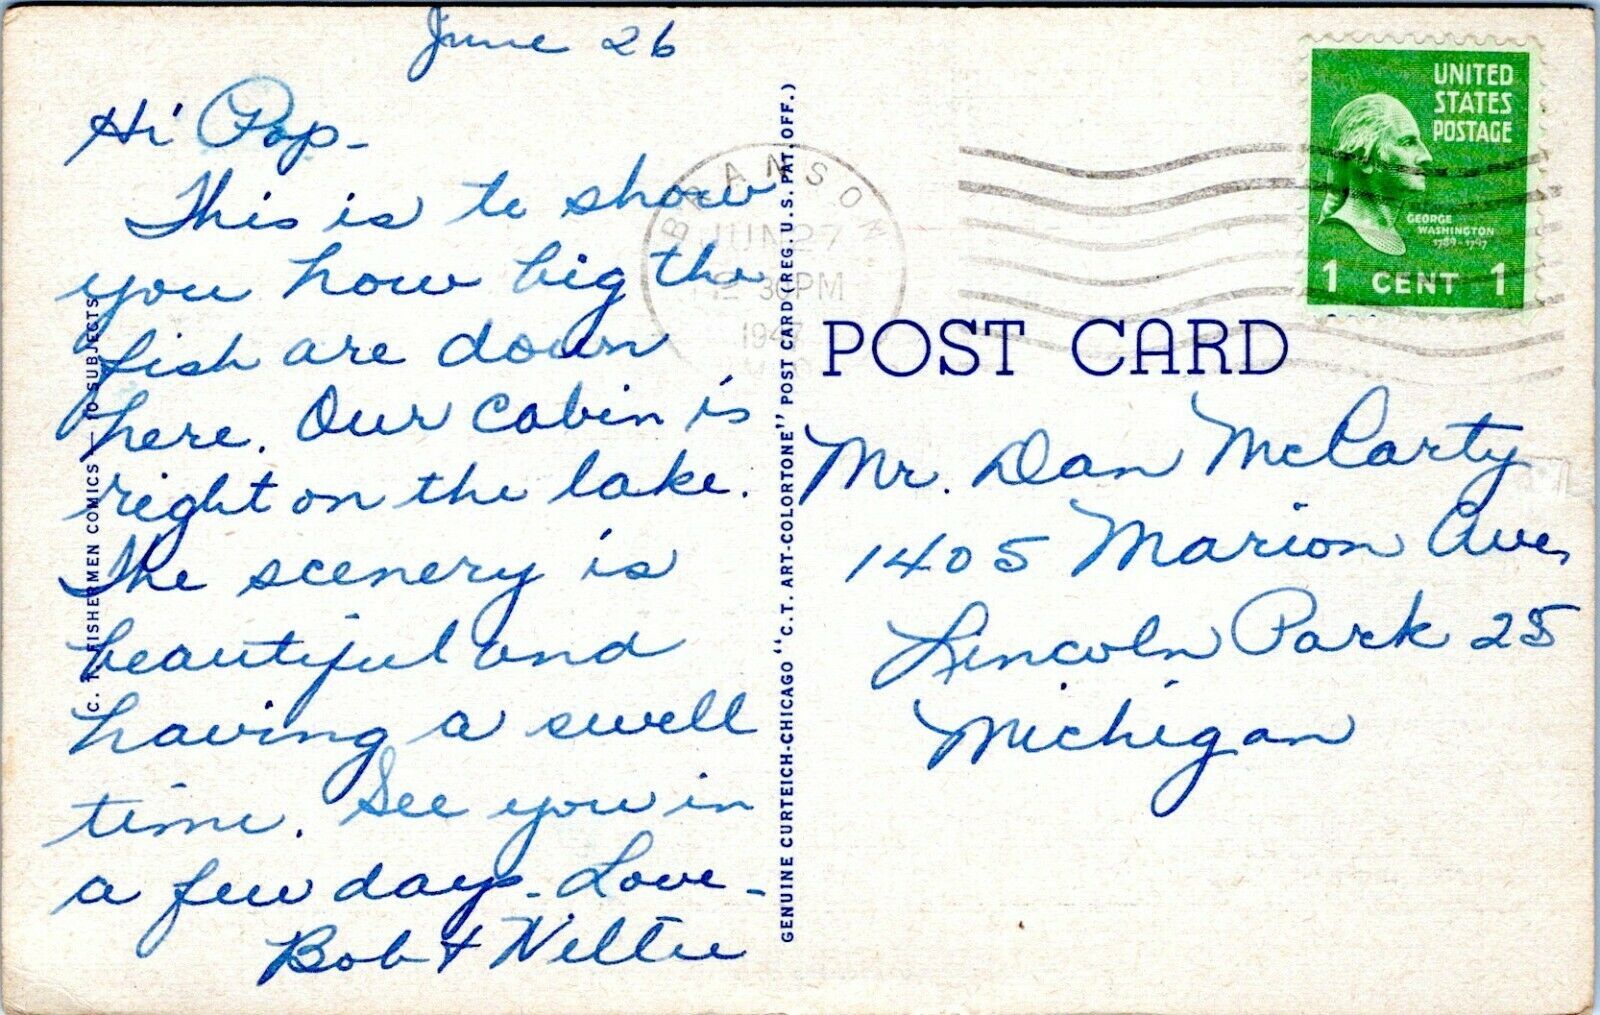 June 26
Hi Pop -
This is to show
you how big the
fish are down
here. Our cabin is
right on the lake.
The scenery is
beautiful and
having a swell
time. See you in
a few days - Love -
Bob &
C. T. FISHERMEN COMICS — 10 SUBJECTS
GENUINE CURTEICH-CHICAGO "C.T. ART-COLORTONE" POST CARD (REG. U.S. PAT. OFF.)
BRANSON
JUN 27
30 PM
1947
UNITED
STATES
POSTAGE
GEORGE
WASHINGTON
1789-1797
1 CENT 1
POST CARD
Mr. Dan McCarty
1405 Marion Ave,
Lincoln Park 25
Michigan